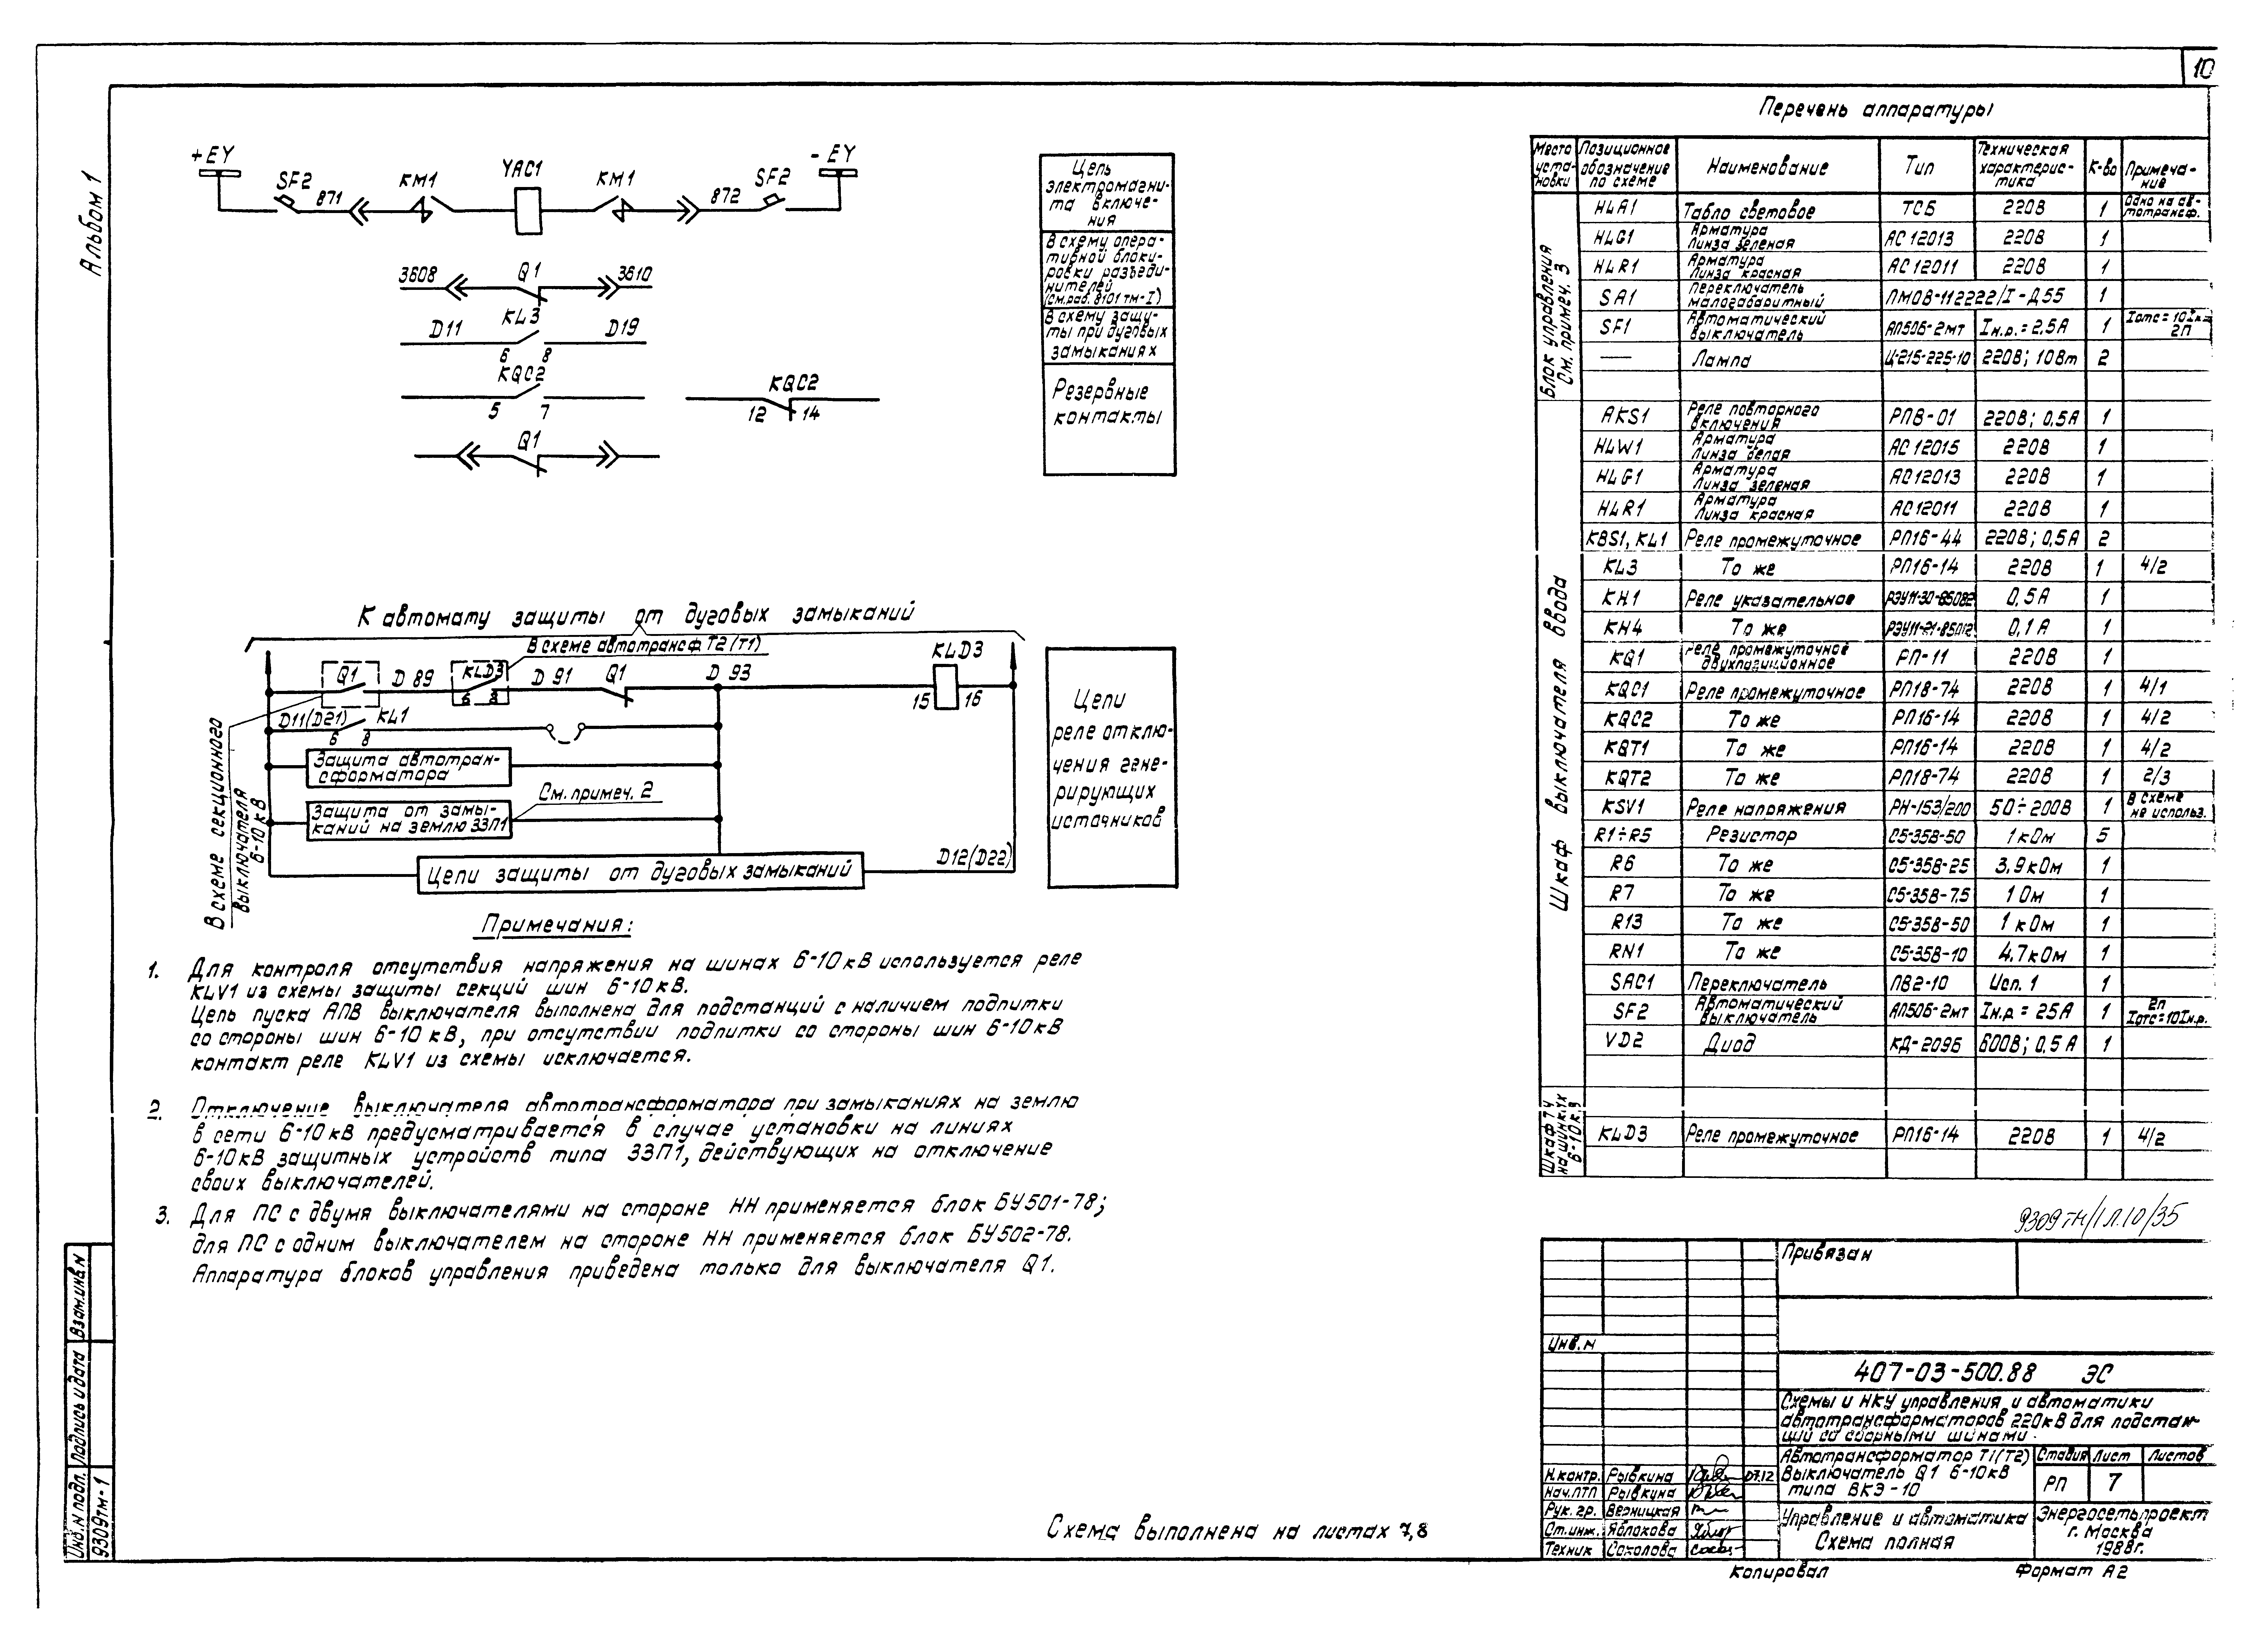 10
Альбом 1
+EY
SF2
871
KM1
YAC1
KM1
872
SF2
-EY
3608
Q1
3610
D11
KL3
D19
6 8
KQC2
5 7
KQC2
12 14
Q1
Цепь
электромагни-
та включе-
ния
В схему опера-
тивной блоки-
ровки разъеди-
нителей
(см.раб. 8101 тм-I)
В схему защи-
ты при дуговых
замыканиях
Резервные
контакты
К автомату защиты от дуговых замыканий
В схеме автотрансф. Т2 (Т1)
Q1
D 89
KLD3
6 8
D 91
Q1
D 93
KLD3
15 16
D11(D21)
KL1
6 8
Защита автотран-
сформатора
См. примеч. 2
Защита от замы-
каний на землю ЗЗП1
D12(D22)
Цепи защиты от дуговых замыканий
В схеме секционного
выключателя
6-10 кВ
Цепи
реле отклю-
чения гене-
рирующих
источников
Примечания:
1. Для контроля отсутствия напряжения на шинах 6-10 кВ используется реле
KLV1 из схемы защиты секций шин 6-10 кВ.
Цепь пуска АПВ выключателя выполнена для подстанций с наличием подпитки
со стороны шин 6-10 кВ, при отсутствии подпитки со стороны шин 6-10 кВ
контакт реле KLV1 из схемы исключается.
2. Отключение выключателя автотрансформатора при замыканиях на землю
в сети 6-10 кВ предусматривается в случае установки на линиях
6-10 кВ защитных устройств типа ЗЗП1, действующих на отключение
своих выключателей.
3. Для ПС с двумя выключателями на стороне НН применяется блок БУ501-78;
для ПС с одним выключателем на стороне НН применяется блок БУ502-78.
Аппаратура блоков управления приведена только для выключателя Q1.
Схема выполнена на листах 7,8
Перечень аппаратуры
Место уста-новки Позиционное обозначение по схеме Наименование Тип Техническая характерис-тика К-во Примеча-ние
Блок управления
См. примеч. 3
HLA1 Табло световое ТСБ 220В 1 Одно на ав-тотрансф.
HLG1 Арматура Линза зеленая АС 12013 220В 1
HLR1 Арматура Линза красная АС 12011 220В 1
SA1 Переключатель малогабаритный ПМОВ-112222/I-Д55 1
SF1 Автоматический выключатель АП50Б-2мт Iн.р.=2,5А 1
— Лампа Ц-215-225-10 220В; 10Вт 2
Шкаф выключателя ввода
AKS1 Реле повторного включения РПВ-01 220В; 0,5А 1
HLW1 Арматура Линза белая АС 12015 220В 1
HLG1 Арматура Линза зеленая АС12013 220В 1
HLR1 Арматура Линза красная АС12011 220В 1
KBS1, KL1 Реле промежуточное РП16-44 220В; 0,5А 2
KL3 То же РП16-14 220В 1 4/2
KH1 Реле указательное РЭУ11-30-85082 0,5А 1
KH4 То же РЭУ11-21-85012 0,1А 1
KQ1 Реле промежуточное двухпозиционное РП-11 220В 1
KQC1 Реле промежуточное РП18-74 220В 1 4/1
KQC2 То же РП16-14 220В 1 4/2
KQT1 То же РП16-14 220В 1 4/2
KQT2 То же РП18-74 220В 1 2/3
KSV1 Реле напряжения РН-153/200 50÷200В 1 В схеме не использ.
R1÷R5 Резистор С5-35В-50 1кОм 5
R6 То же С5-35В-25 3,9кОм 1
R7 То же С5-35В-7,5 1 Ом 1
R13 То же С5-35В-50 1 кОм 1
RN1 То же С5-35В-10 4,7кОм 1
SAC1 Переключатель ПВ2-10 Исп. 1 1
SF2 Автоматический выключатель АП50Б-2мт Iн.р = 25А 1 2п Iотс=10Iн.р.
VD2 Диод КД-209Б 600В; 0,5А 1
KLD3 Реле промежуточное РП16-14 220В 1 4/2
9309тм/1 Л.10/35
Привязан
Инв. N
407-03-500.88 ЭС
Схемы и НКУ управления и автоматики
автотрансформаторов 220кВ для подстан-
ций со сборными шинами.
Автотрансформатор Т1(Т2)
Выключатель Q1 6-10кВ
типа ВКЭ-10
Стадия Лист Листов
РП 7
Н.контр. Рывкина 07.12
Нач.ПТП Рывкина
Рук. гр. Верницкая
Ст.инж. Яблокова
Техник Соколова
Управление и автоматика
Схема полная
Энергосетьпроект
г. Москва
1988г.
Копировал Формат А2
Взам.инв.N
Подпись и дата
Инв.N подл.
9309тм-1